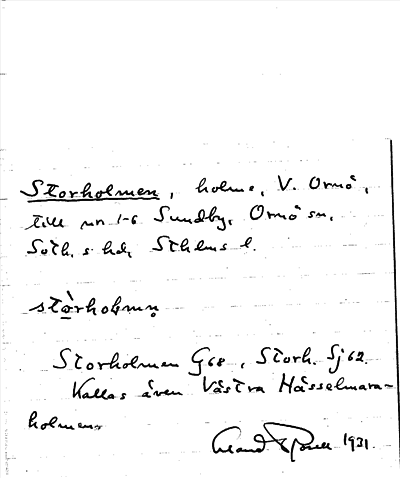 Storholmen, holme, V. Ornö,
till nr 1-6 Sundby, Ornö sn,
Soth. s hd, Sthlms l.
stòrholmn̥
Storholmen G68, Storh. Sj62.
Kallas även Västra Hässelmara-
holmen.
1931.